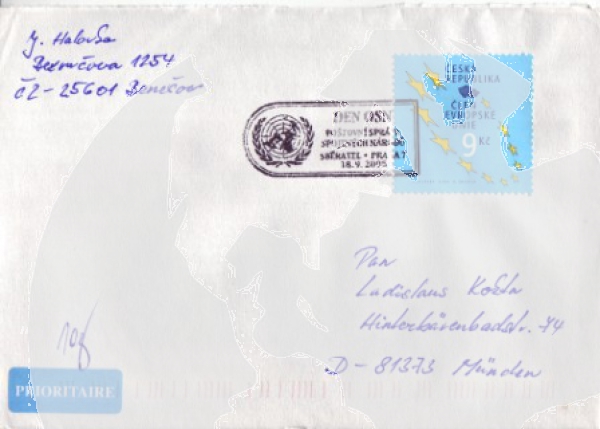 J. Halouska
Bezručova 1254
ČZ-25601 Benešov
DEN OSN
POŠTOVNÍ SPRÁ
SPOJENÝCH NÁRODŮ
SBĚRATEL · PRAHA 7
18.9.2005
ČESKÁ
REPUBLIKA
ČLEN
EVROPSKÉ
UNIE
9 Kč
Pan
Ladislaus Košta
Hinterbärenbadstr. 74
D-81373 München
PRIORITAIRE